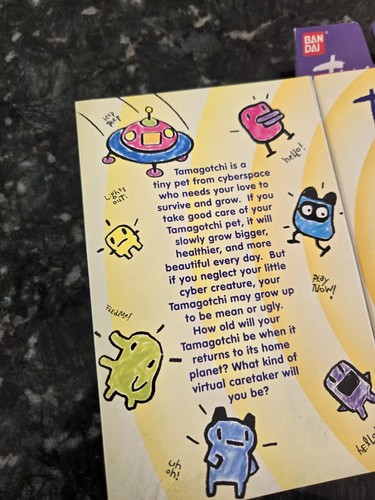 BAN
DAI
hello!
Tamagotchi is a
tiny pet from cyberspace
who needs your love to
survive and grow. If you
take good care of your
Tamagotchi pet, it will
slowly grow bigger,
healthier, and more
beautiful every day. But
if you neglect your little
cyber creature, your
Tamagotchi may grow up
to be mean or ugly.
How old will your
Tamagotchi be when it
returns to its home
planet? What kind of
virtual caretaker will
you be?
Lights
out!
PLAY
NOW!
Feed Me!
uh
oh!
hello!